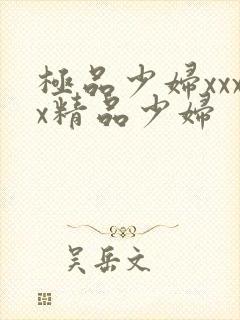 極品少婦xxx
x精品少婦
吴岳文